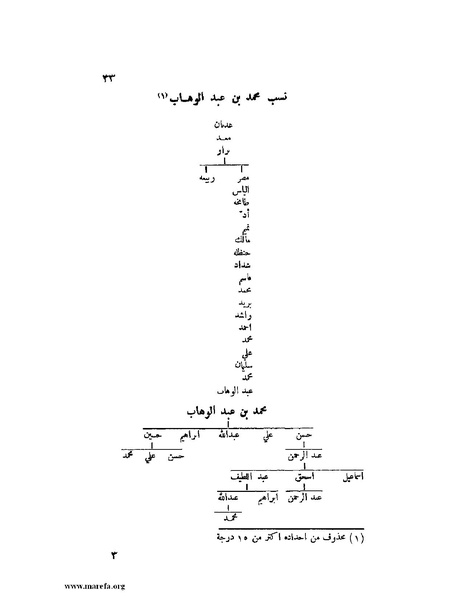 ٣٣
نسب محمد بن عبد الوهاب (١)
عدنان
معد
نزار
مضر ربيعه
الياس
طابخه
أد
تميم
مالك
حنظله
شداد
قاسم
محمد
بريد
راشد
احمد
محمد
علي
سليمان
محمد
عبد الوهاب
محمد بن عبد الوهاب
حسن علي عبدالله ابراهيم حسين
عبد الرحمن حسن علي محمد
اسماعيل اسحق عبد اللطيف
عبد الرحمن ابراهيم عبدالله
محمد
(١) محذوف من اجداده اكثر من ١٥ درجة
٣
www.marefa.org